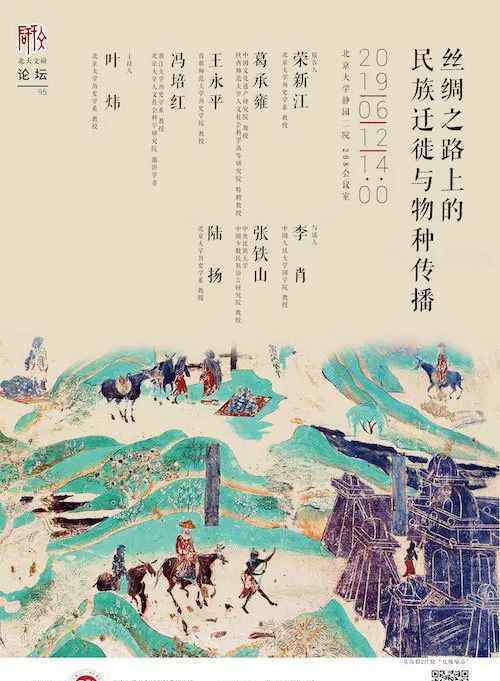 北大文研
论坛
95
丝绸之路上的
民族迁徙与物种传播
2019.06.12 14:00
北京大学静园二院 208会议室
报告人
荣新江
北京大学历史学系 教授
葛承雍
中国文化遗产研究院 教授
陕西师范大学人文社会科学高等研究院 特聘教授
王永平
首都师范大学历史学院 教授
冯培红
浙江大学历史学系 教授
北京大学人文社会科学研究院 邀访学者
主持人
叶炜
北京大学历史学系 教授
与谈人
李肖
中国人民大学国学院 教授
张铁山
中央民族大学
中国少数民族语言研究院 教授
陆扬
北京大学历史学系 教授